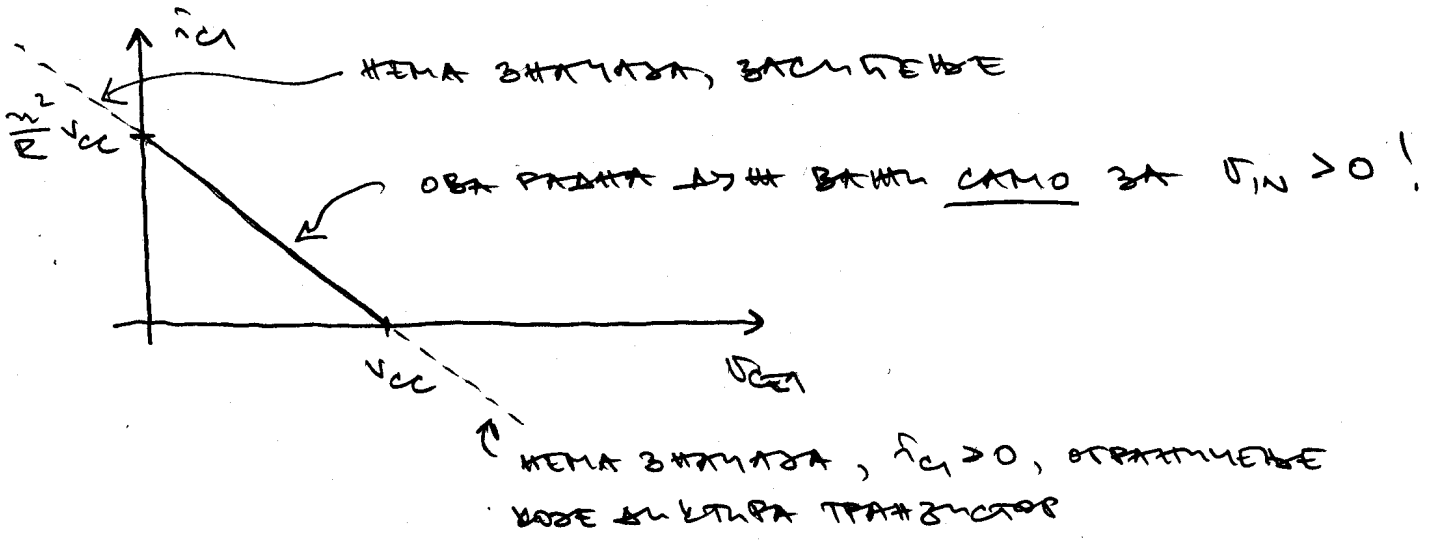 i_C1
НЕМА ЗНАЧАЈА, ЗАСИЋЕЊЕ
n²/R V_CC
ОВА РАДНА ДУЖ ВАЖИ САМО ЗА v_IN > 0 !
V_CC
v_CE1
НЕМА ЗНАЧАЈА, i_C1 > 0, ОГРАНИЧЕЊЕ
КОЈЕ ДИКТИРА ТРАНЗИСТОР